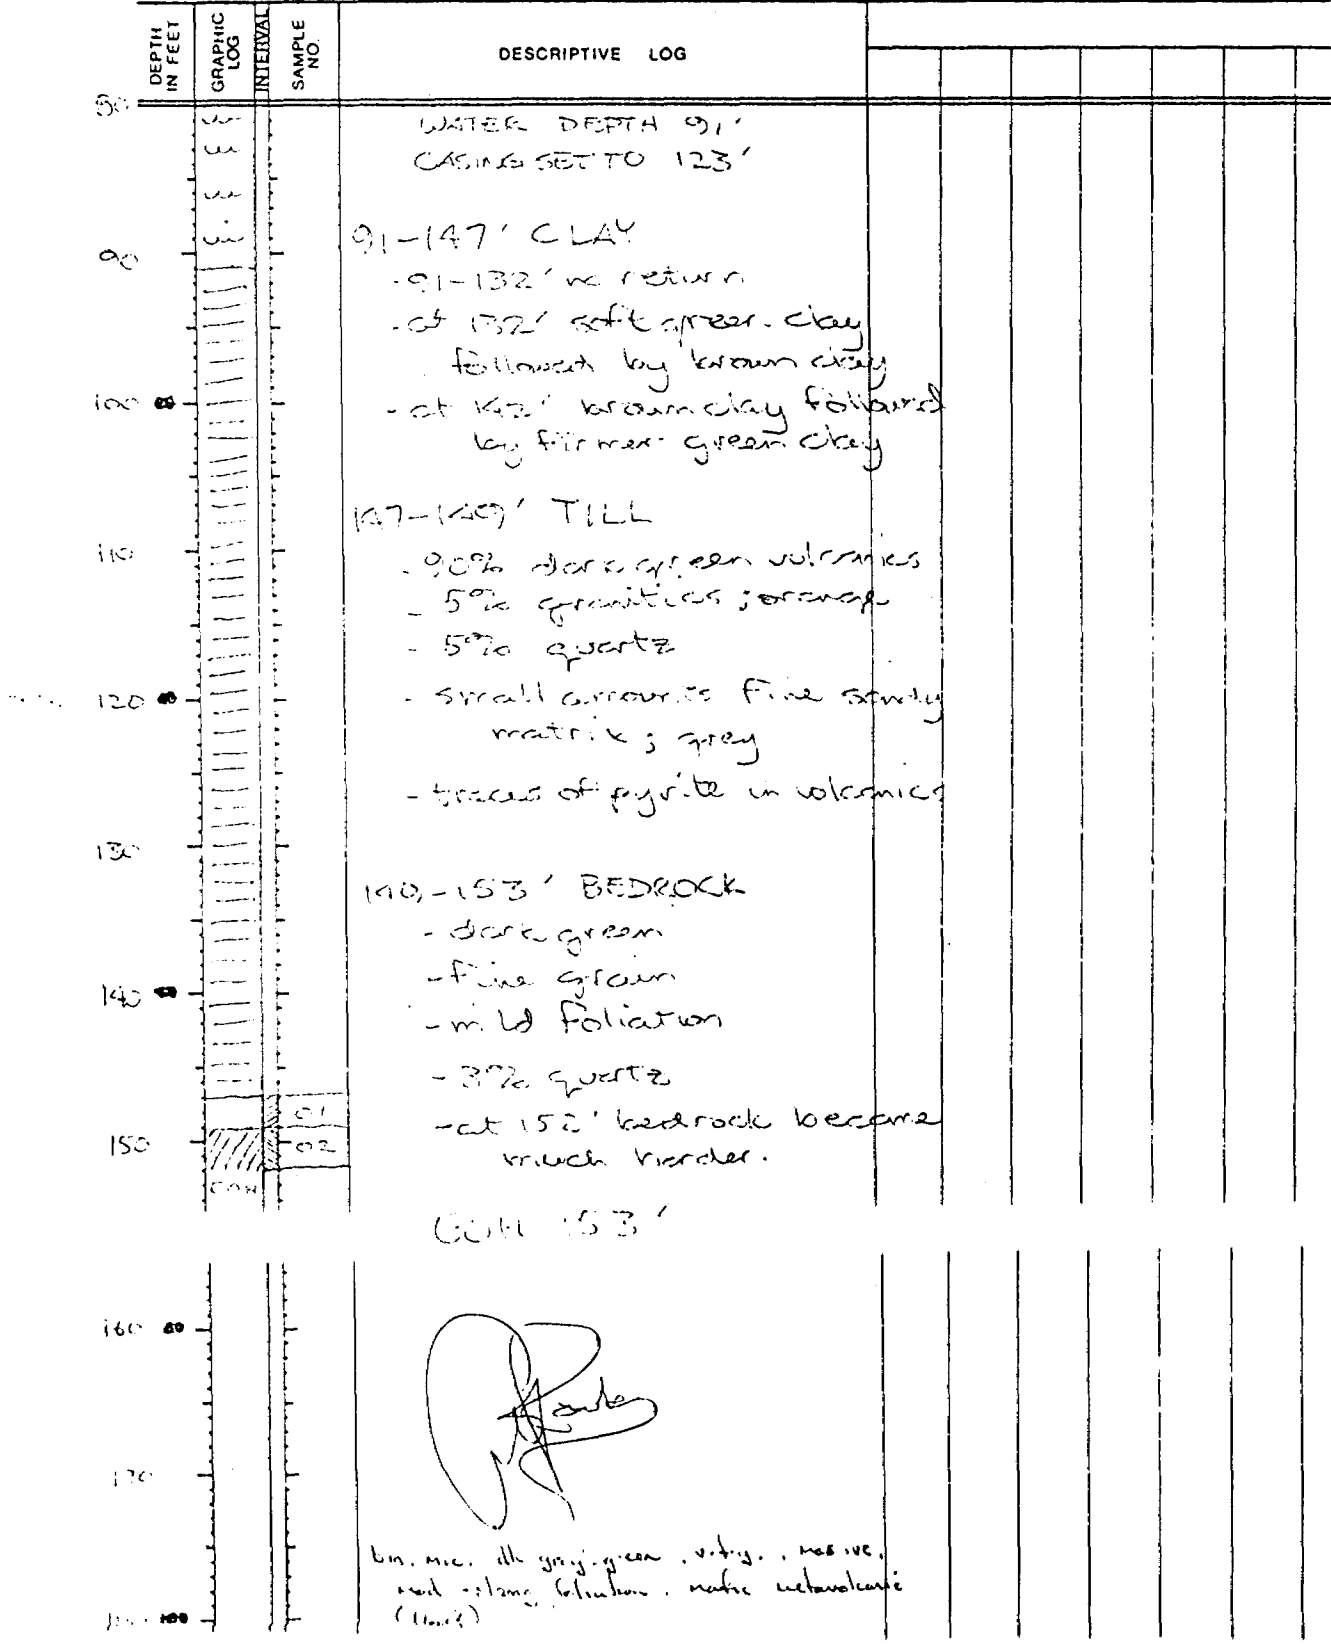 DEPTH IN FEET
GRAPHIC LOG
INTERVAL
SAMPLE NO.
DESCRIPTIVE LOG
80
WATER DEPTH 91'
CASING SET TO 123'
91-147' CLAY
90
-91-132' no return
-at 132' soft green clay
followed by brown clay
100
-at 142' brown clay followed
by firmer green clay
147-149' TILL
110
-90% dark green volcanics
-5% granitics; orange
-5% quartz
120
-small amounts fine sandy
matrix; grey
-traces of pyrite in volcanics
130
149-153' BEDROCK
-dark green
-fine grain
140
-mild foliation
-3% quartz
01
-at 152' bedrock became
150
02
much harder.
EOH
EOH 153'
160
170
bin. mic. dk grey-green, massive,
mod -strong foliation. mafic metavolcanic
180